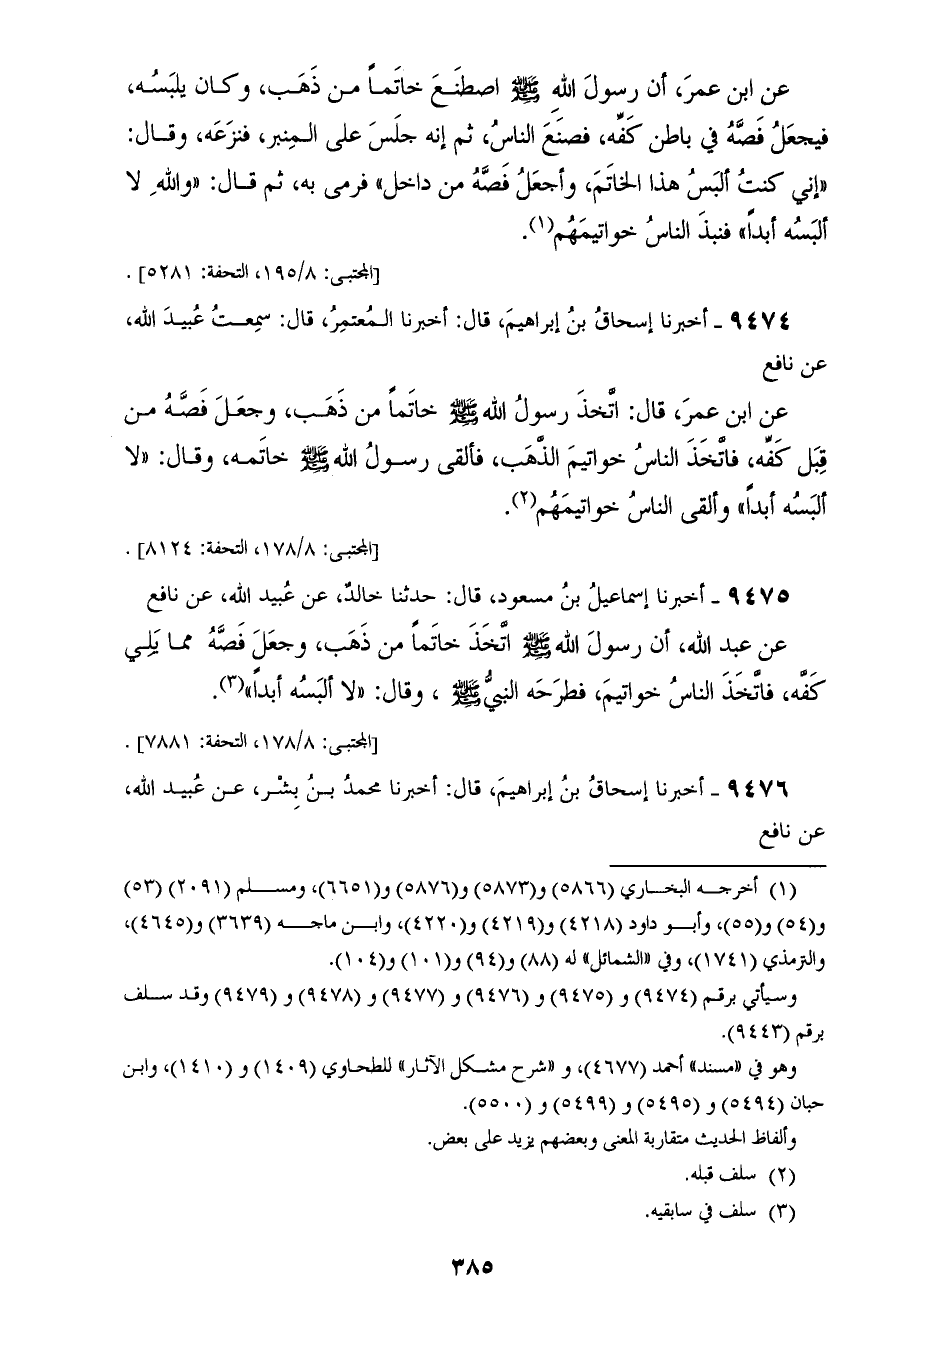 عن ابن عمرَ، أن رسولَ اللهِ ﷺ اصطَنَعَ خاتَماً من ذَهَب، وكان يلبَسُه،
فيجعَلُ فَصَّهُ في باطن كَفِّه، فصنَعَ الناسُ، ثم إنه جلَسَ على المِنبر، فنزَعَه، وقال:
«إني كنتُ ألبَسُ هذا الخاتَمَ، وأجعَلُ فَصَّهُ من داخل» فرمى به، ثم قال: «واللهِ لا
ألبَسُه أبداً» فنبذَ الناسُ خواتيمَهُم(١).
[المجتبى: ١٩٥/٨، التحفة: ٥٢٨١] .
٩٤٧٤ ـ أخبرنا إسحاقُ بنُ إبراهيمَ، قال: أخبرنا المُعتمِرُ، قال: سمِعتُ عُبيدَ الله،
عن نافع
عن ابن عمرَ، قال: اتَّخذَ رسولُ الله ﷺ خاتَماً من ذَهَب، وجعَلَ فَصَّهُ من
قِبَل كَفِّه، فاتَّخَذَ الناسُ خواتيمَ الذَّهَب، فألقى رسولُ الله ﷺ خاتَمه، وقال: «لا
ألبَسُه أبداً» وألقى الناسُ خواتيمَهُم(٢).
[المجتبى: ١٧٨/٨، التحفة: ٨١٢٤] .
٩٤٧٥ ـ أخبرنا إسماعيلُ بنُ مسعود، قال: حدثنا خالدٌ، عن عُبيد الله، عن نافع
عن عبد الله، أن رسولَ الله ﷺ اتَّخَذَ خاتَماً من ذَهَب، وجعَلَ فَصَّهُ مما يَلِي
كَفَّه، فاتَّخَذَ الناسُ خواتيمَ، فطرَحَه النبيُّ ﷺ ، وقال: «لا ألبَسُه أبداً»(٣).
[المجتبى: ١٧٨/٨، التحفة: ٧٨٨١] .
٩٤٧٦ ـ أخبرنا إسحاقُ بنُ إبراهيمَ، قال: أخبرنا محمدُ بنُ بِشْر، عن عُبيد الله،
عن نافع
(١) أخرجه البخاري (٥٨٦٦) و(٥٨٧٣) و(٥٨٧٦) و(٦٦٥١)، ومسلم (٢٠٩١) (٥٣)
و(٥٤) و(٥٥)، وأبو داود (٤٢١٨) و(٤٢١٩) و(٤٢٢٠)، وابن ماجه (٣٦٣٩) و(٤٦٤٥)،
والترمذي (١٧٤١)، وفي «الشمائل» له (٨٨) و(٩٤) و(١٠١) و(١٠٤).
وسيأتي برقم (٩٤٧٤) و (٩٤٧٥) و (٩٤٧٦) و (٩٤٧٧) و (٩٤٧٨) و (٩٤٧٩) وقد سلف
برقم (٩٤٤٣).
وهو في «مسند» أحمد (٤٦٧٧)، و «شرح مشكل الآثار» للطحاوي (١٤٠٩) و (١٤١٠)، وابن
حبان (٥٤٩٤) و (٥٤٩٥) و (٥٤٩٩) و (٥٥٠٠).
وألفاظ الحديث متقاربة المعنى وبعضهم يزيد على بعض.
(٢) سلف قبله.
(٣) سلف في سابقيه.
٣٨٥